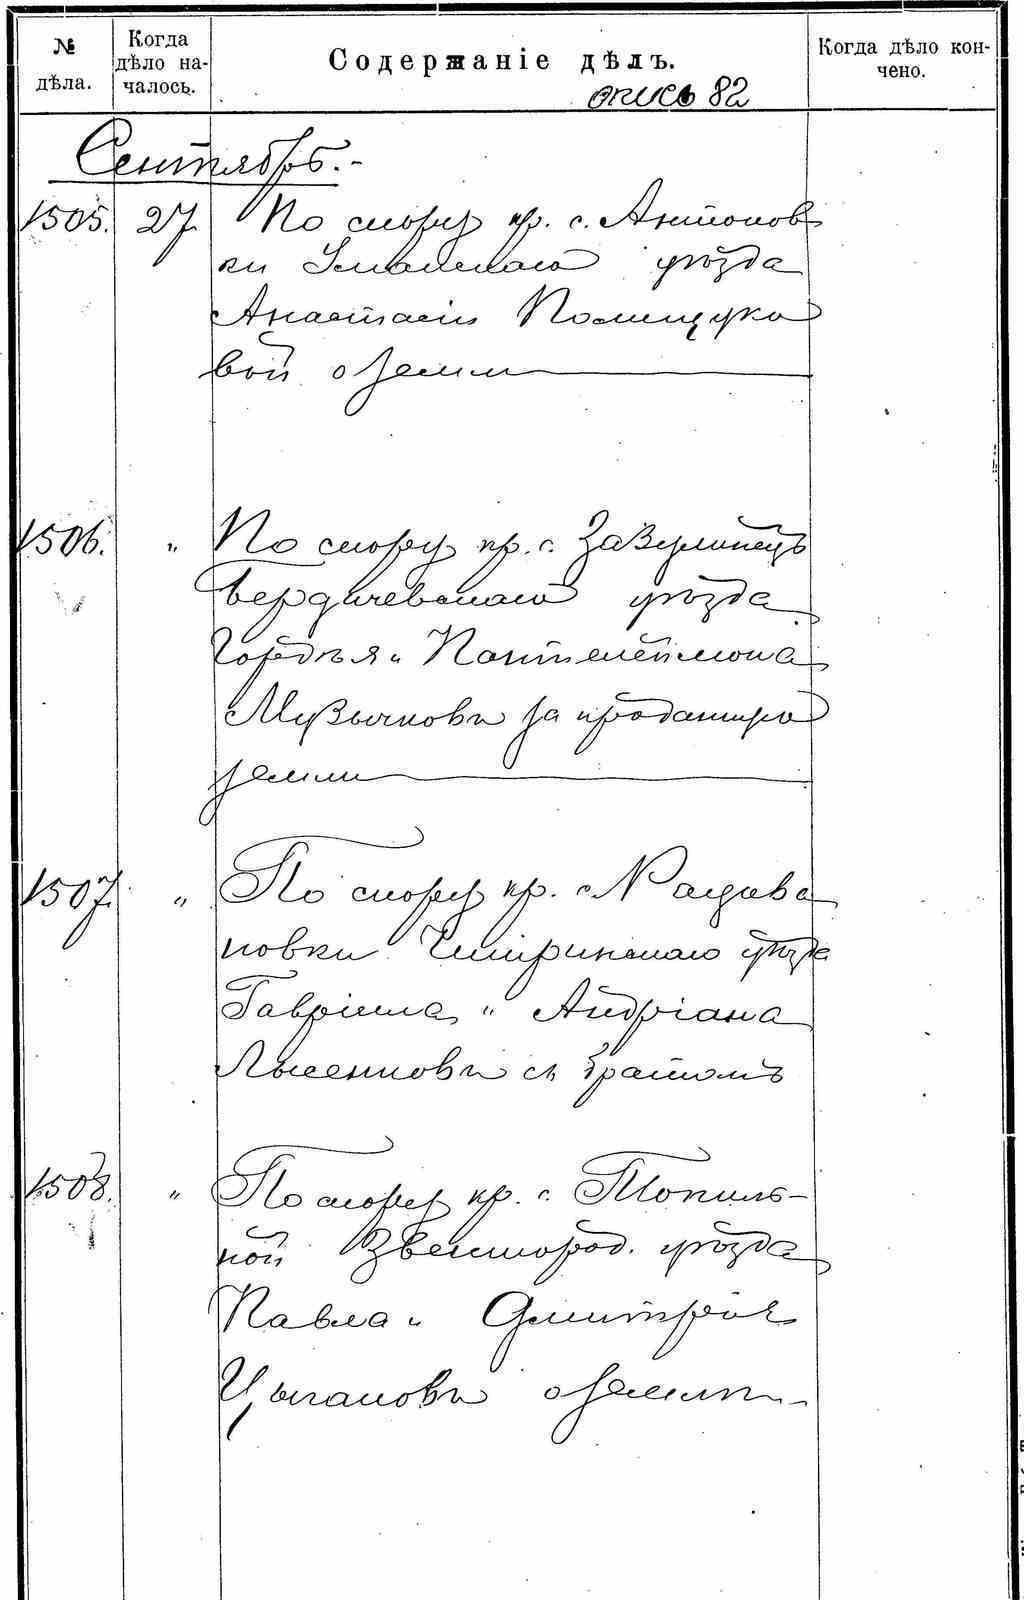 № дѣла.
Когда дѣло на-
чалось.
Содержаніе дѣлъ.
Когда дѣло кон-
чено.
опись 82
Сентябрь.
1505. 27. По спору кр. с. Антонов
ки Уманскаго уѣзда
Анастасіи Полищуко
вой о землѣ
1506. " По спору кр. с.
Бердичевскаго уѣзда
Гордѣя и Пантелеймона
Музычковъ за проданную
землю
1507. " По спору кр. с.
новки Чигиринскаго уѣзда
Гавріила и Андріана
Лысенковъ съ братомъ
1508. " По спору кр. с. Топиль-
ной Звенигород. уѣзда
Павла и Дмитрія
Цыгановъ о землѣ